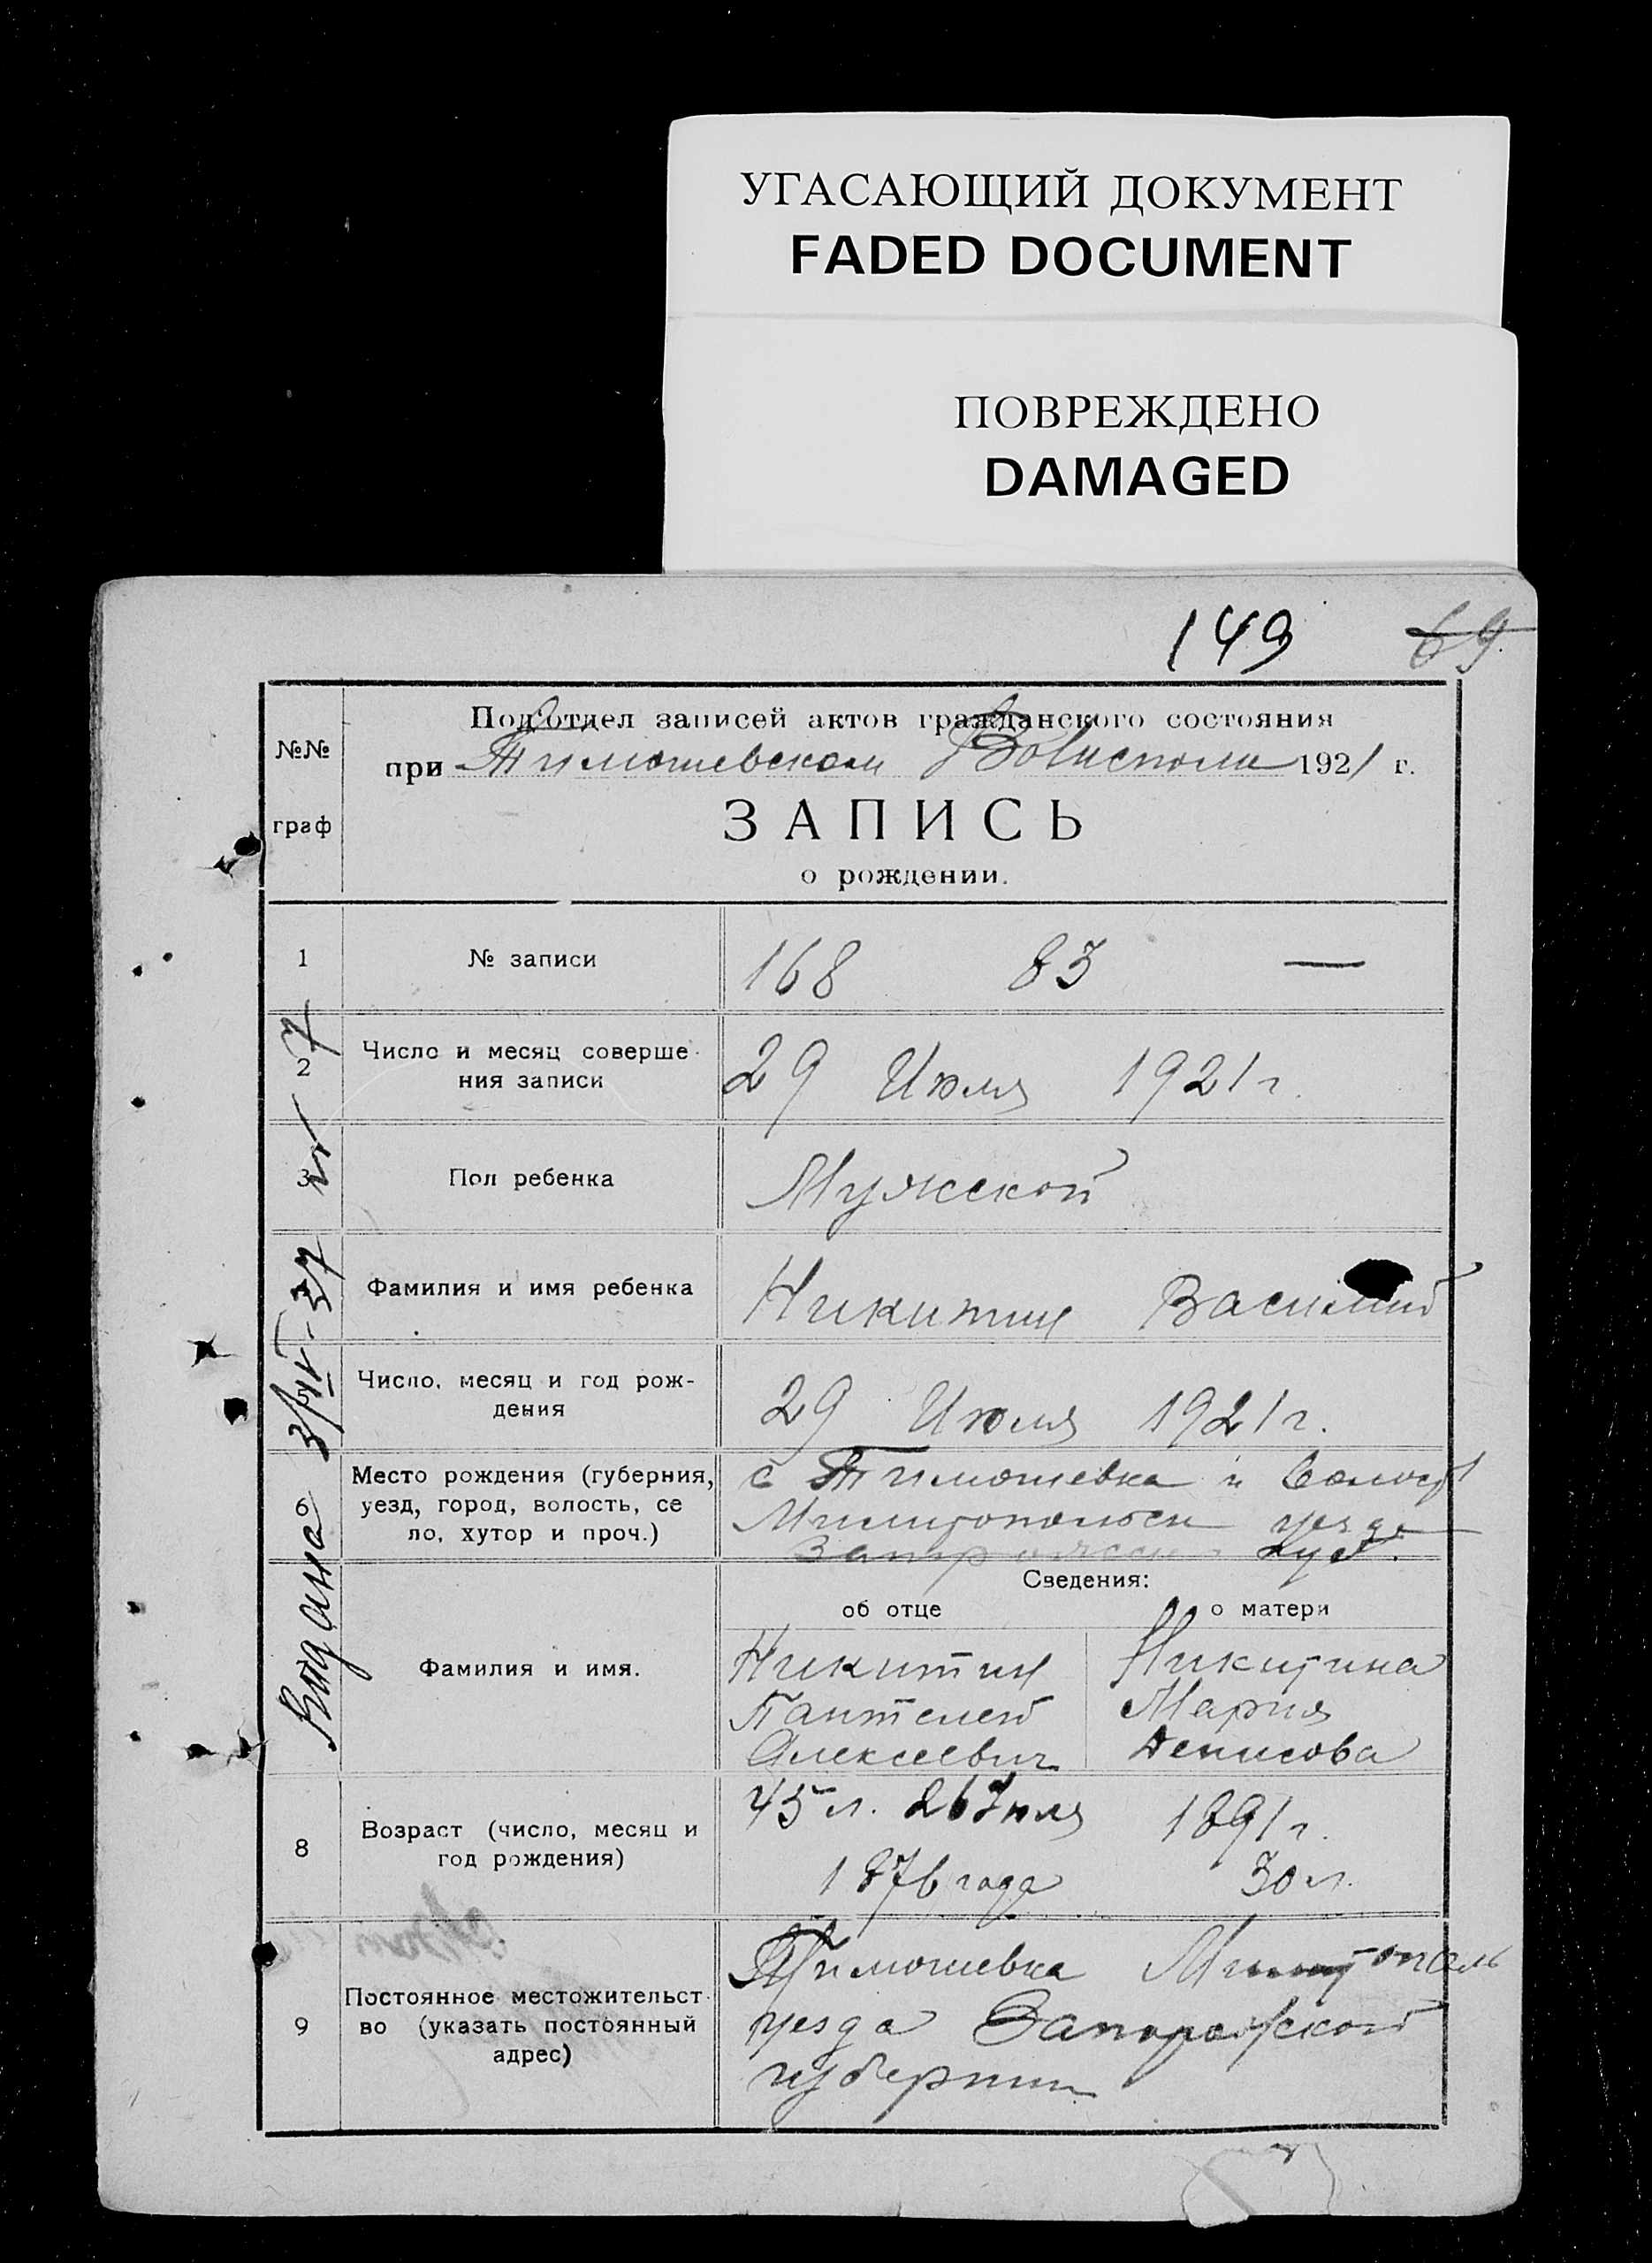 УГАСАЮЩИЙ ДОКУМЕНТ
FADED DOCUMENT
ПОВРЕЖДЕНО
DAMAGED
149 69
№№ граф
Подотдел записей актов гражданского состояния
при Тимошевском Волисполк 1921 г.
ЗАПИСЬ
о рождении.
1 № записи 168 83 —
2 Число и месяц соверше-
ния записи
29 Июля 1921 г.
3 Пол ребенка Мужской
Фамилия и имя ребенка Никитин Василий
Число, месяц и год рож-
дения
29 Июля 1921 г.
6 Место рождения (губерния,
уезд, город, волость, се
ло, хутор и проч.)
с Тимошевка и
уезда
губ.
Выдана
Сведения:
об отце о матери
Фамилия и имя.
Никитин Никитина
Пантелей Мария
Алексеевич Денисова
8 Возраст (число, месяц и
год рождения)
45 л. 26 Июля 1891 г.
1876 года 30 л.
9 Постоянное местожительст-
во (указать постоянный
адрес)
Тимошевка
уезда Запорожской
губернии